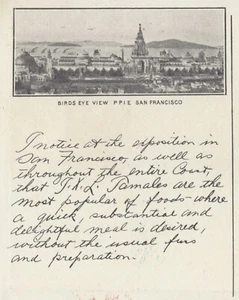 BIRDS EYE VIEW P.P.I.E. SAN FRANCISCO
I notice at the exposition in
San Francisco, as well as
throughout the entire Coast,
that I.X.L. Tamales are the
most popular of foods where
a quick, substantial and
delightful meal is desired,
without the usual fuss
and preparation.